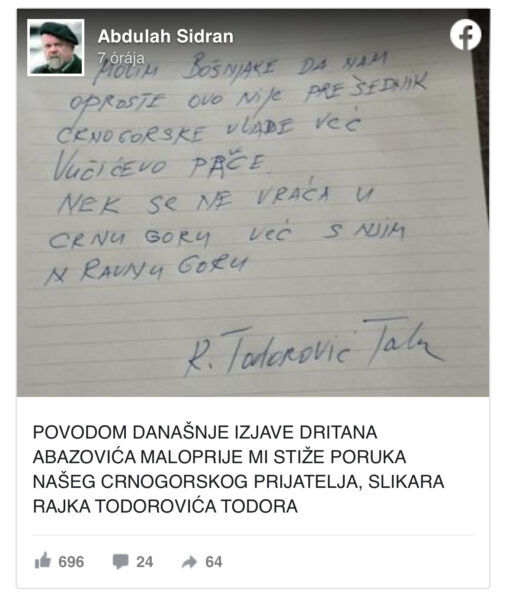 Abdulah Sidran
7 órája
MOLIM BOŠNJAKE DA NAM
OPROSTE OVO NIJE PREŠEDNIK
CRNOGORSKE VLADE VEĆ
VUČIĆEVO PAČE.
NEK SE NE VRAĆA U
CRNU GORU VEĆ S NJIM
N RAVNU GORU
R. Todorović
POVODOM DANAŠNJE IZJAVE DRITANA
ABAZOVIĆA MALOPRIJE MI STIŽE PORUKA
NAŠEG CRNOGORSKOG PRIJATELJA, SLIKARA
RAJKA TODOROVIĆA TODORA
696 24 64